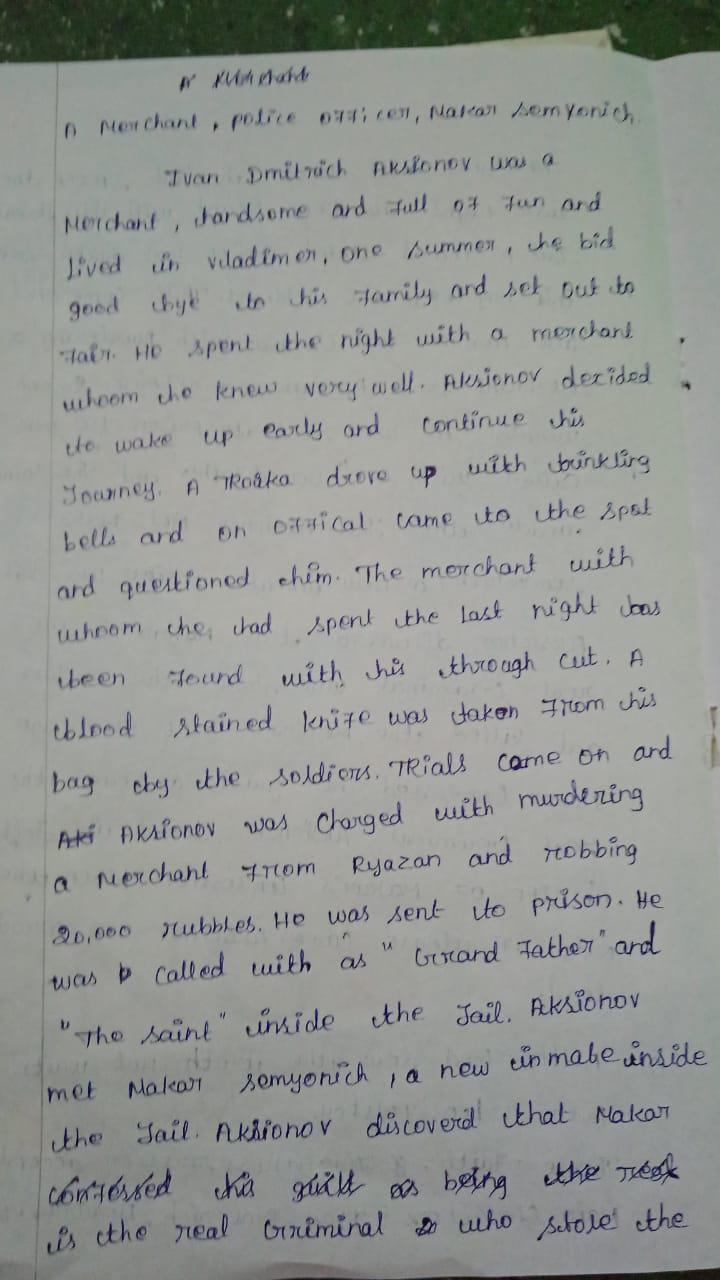 A Merchant, police officer, Makar Semyonich.
Ivan Dmitrich Aksionov was a
Merchant, handsome and full of fun and
lived in vladimer, one summer, he bid
good bye to his family and set out to
fair. He spent the night with a merchant
whoom he knew very well. Aksionov decided
to wake up early and continue his
Journey. A TRoika drove up with trinkling
bells and an offical came to the spot
and questioned him. The merchant with
whoom he had spent the last night has
been found with his through cut. A
blood stained knife was taken from his
bag by the soldiers. TRials came on and
Aksionov was charged with murdering
a Merchant from Ryazan and robbing
20,000 rubbles. He was sent to prison. He
was called with as "Grand Father" and
"The saint" inside the Jail. Aksionov
met Makar semyonich, a new inmate inside
the Jail. Aksionov discoverd that Makar
confessed his guilt as being the real
is the real Criminal who stole the